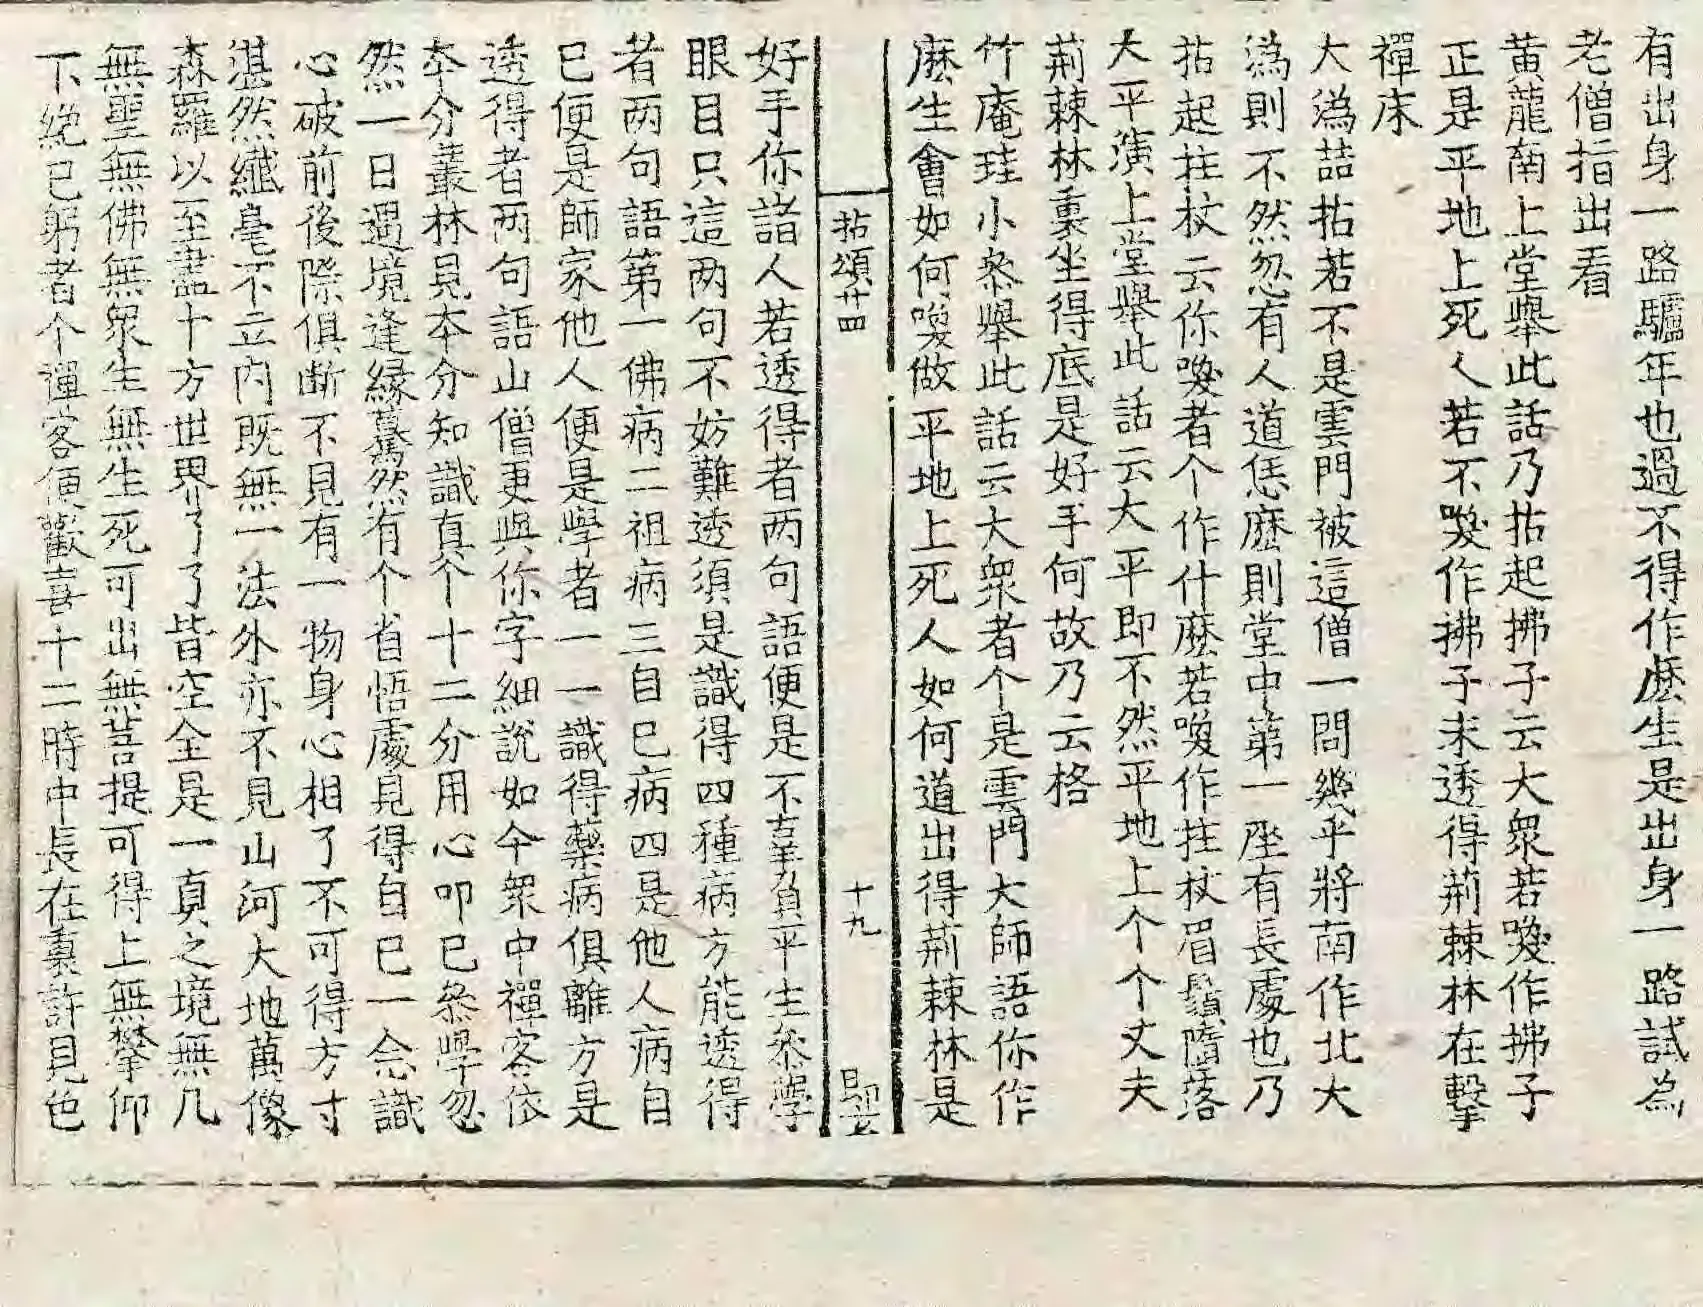 有出身一路驢年也過不得作麽生是出身一路試為
老僧指出看
黄龍南上堂舉此話乃拈起拂子云大衆若喚作拂子
正是平地上死人若不喚作拂子未透得荆棘林在擊
禪床
大溈喆拈若不是雲門被這僧一問幾乎將南作北大
溈則不然忽有人道恁麽則堂中第一座有長處也乃
拈起拄杖云你喚者个作什麽若喚作拄杖眉鬚墮落
大平演上堂舉此話云大平即不然平地上个个丈夫
荆棘林裏坐得底是好手何故乃云格
竹庵珪小叅舉此話云大衆者个是雲門大師語你作
麽生會如何喚做平地上死人如何道出得荆棘林是
拈頌廿四 十九
好手你諸人若透得者两句語便是不辜負平生叅學
眼目只這两句不妨難透須是識得四種病方能透得
者两句語第一佛病二祖病三自已病四是他人病自
已便是師家他人便是學者一一識得藥病俱離方是
透得者两句語山僧更與你字細說如今衆中禪客依
本分叢林見本分知識真个十二分用心叩已叅學忽
然一日遇境逢緣驀然有个省悟處見得自已一念識
心破前後際俱斷不見有一物身心相了不可得方寸
湛然纎毫不立内既無一法外亦不見山河大地萬像
森羅以至盡十方世界了了皆空全是一真之境無凡
無聖無佛無衆生無生死可出無菩提可得上無攀仰
下絶已躬者个禪客便歡喜十二時中長在裏許見色